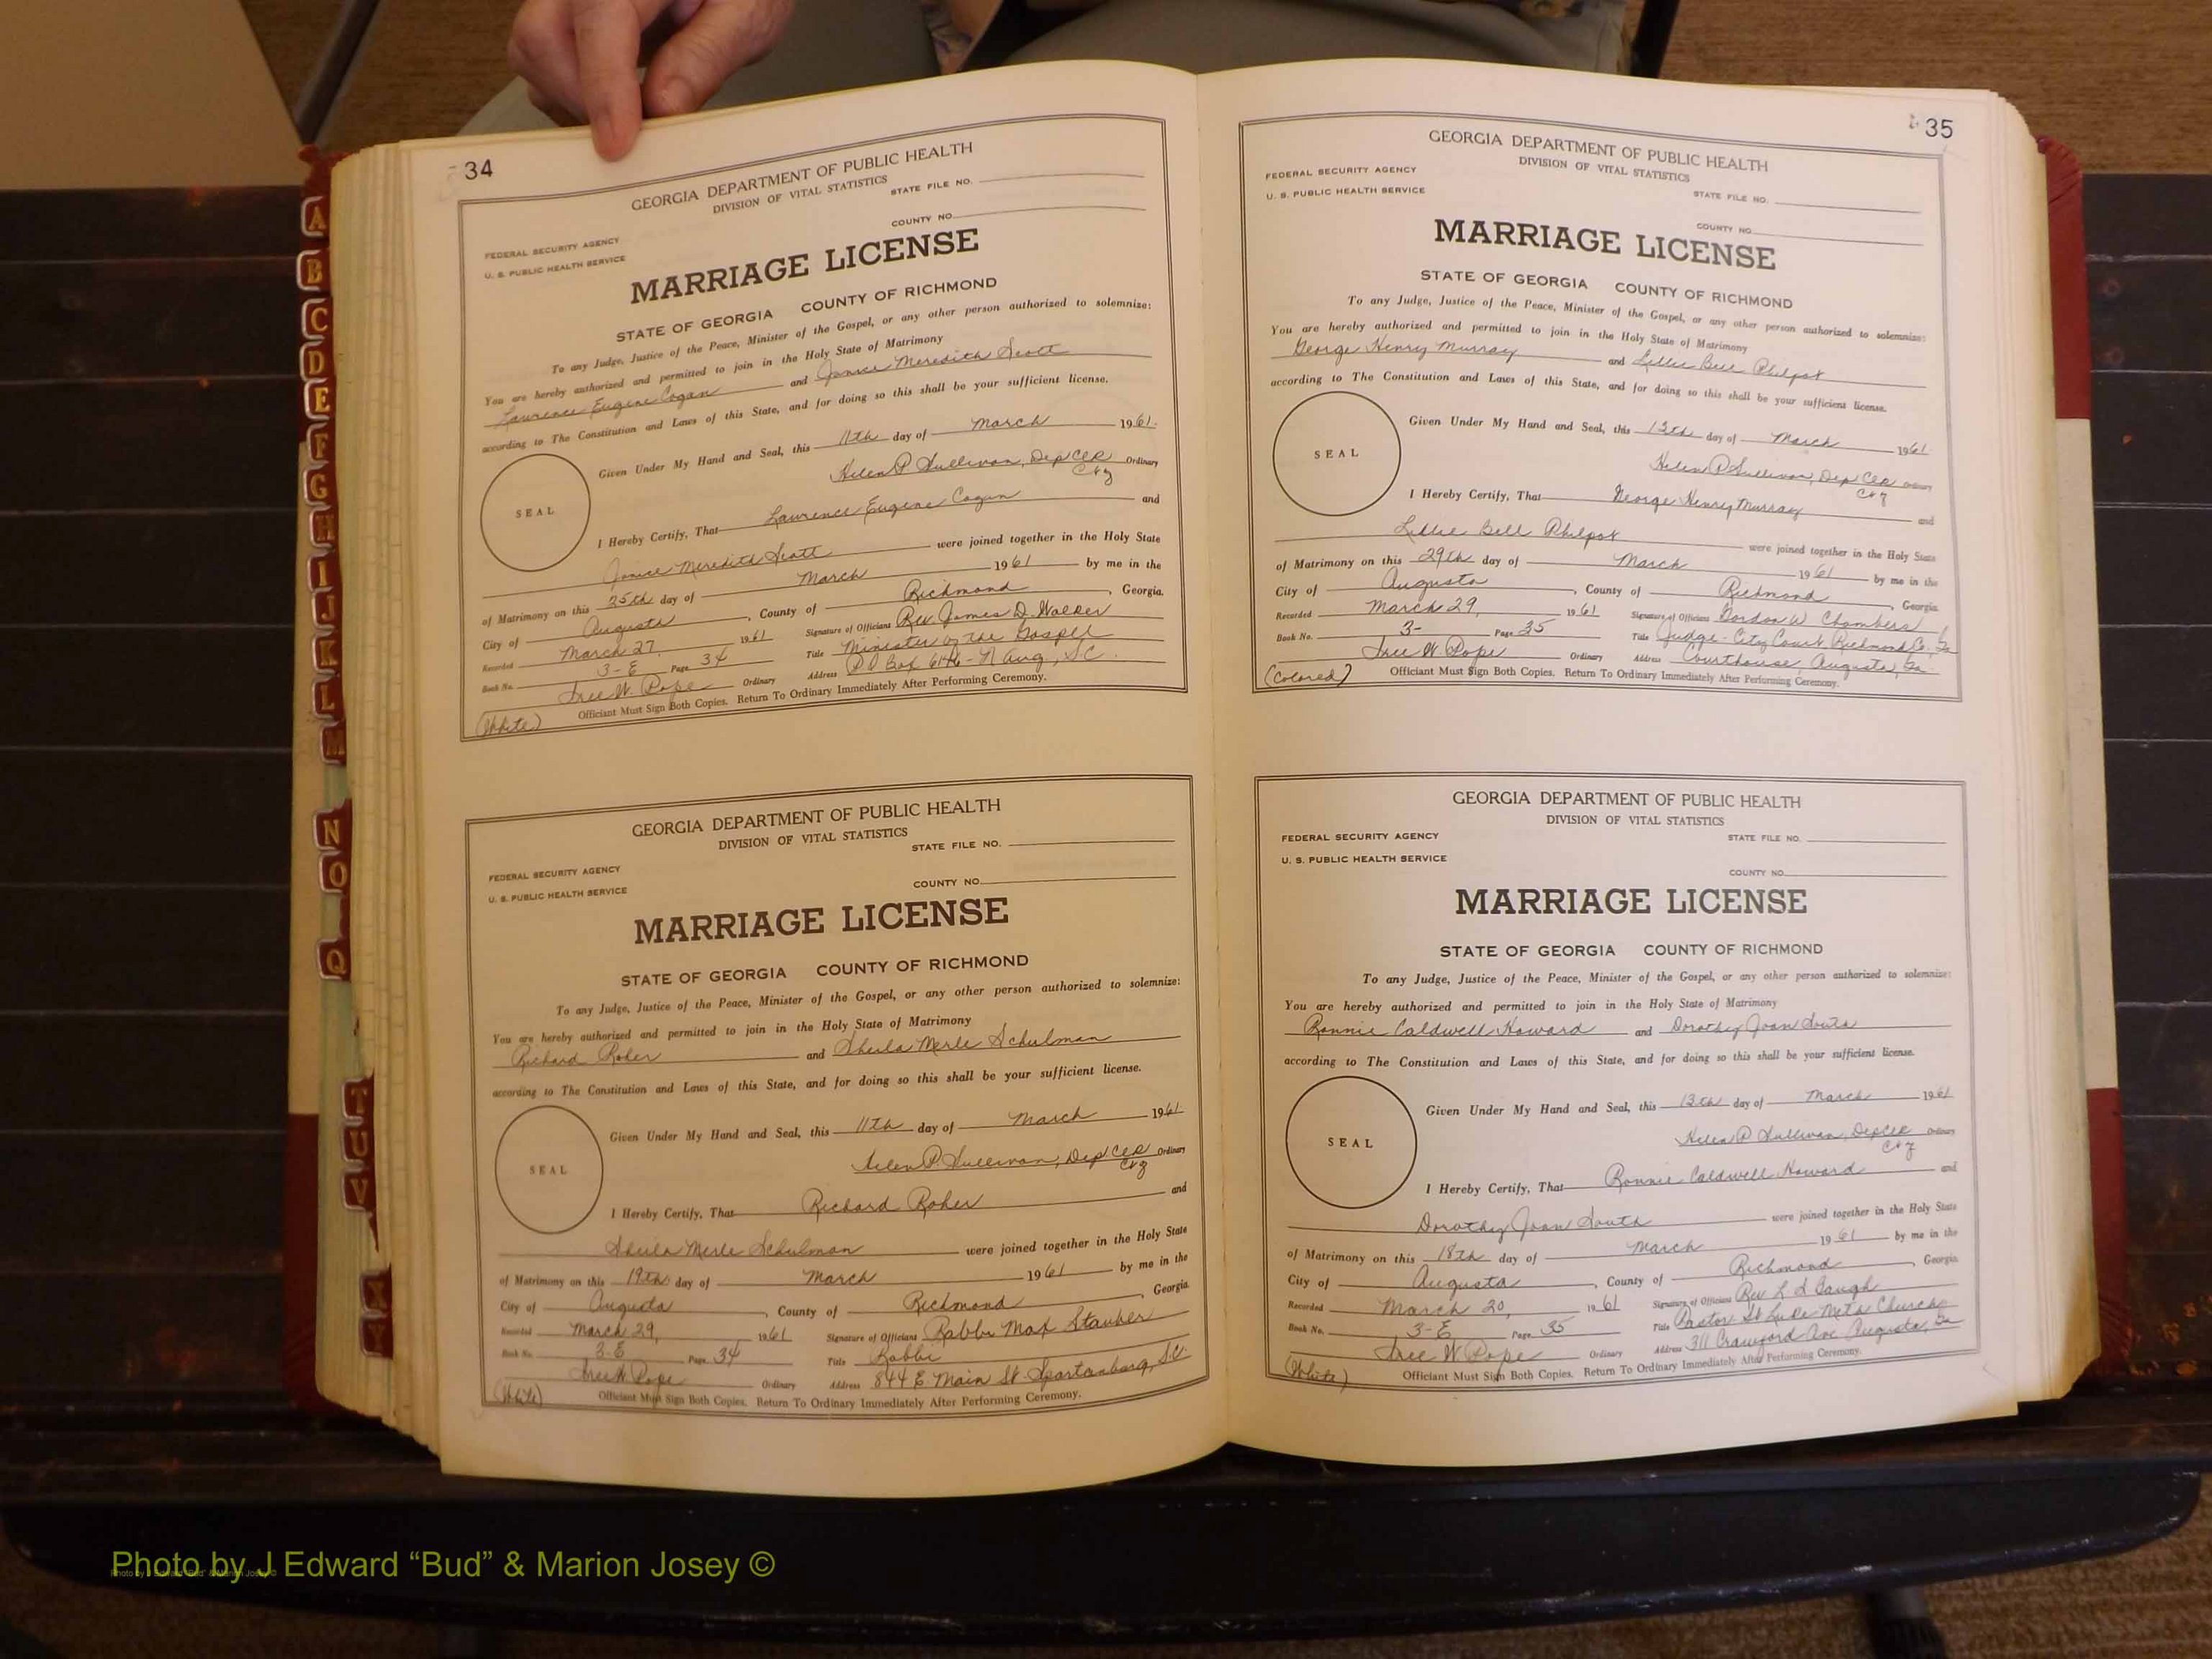 34
GEORGIA DEPARTMENT OF PUBLIC HEALTH
DIVISION OF VITAL STATISTICS
STATE FILE NO.
COUNTY NO.
FEDERAL SECURITY AGENCY
U. S. PUBLIC HEALTH SERVICE
MARRIAGE LICENSE
STATE OF GEORGIA COUNTY OF RICHMOND
To any Judge, Justice of the Peace, Minister of the Gospel, or any other person authorized to solemnize:
You are hereby authorized and permitted to join in the Holy State of Matrimony
Lawrence Eugene Cogan and Janice Meredith Scott
according to The Constitution and Laws of this State, and for doing so this shall be your sufficient license.
Given Under My Hand and Seal, this 11th day of March 1961.
Helen P Sullivan, Dep Clk Ordinary
SEAL
I Hereby Certify, That Lawrence Eugene Cogan and
Janice Meredith Scott were joined together in the Holy State
of Matrimony on this 25th day of March 1961 by me in the
City of Augusta, County of Richmond, Georgia.
Recorded March 27, 1961 Signature of Officiant Rev. James D. Walker
Book No. 3-E Page 34 Title Minister of the Gospel
Ordinary Address P O Box - N Aug, S.C.
(White) Officiant Must Sign Both Copies. Return To Ordinary Immediately After Performing Ceremony.
GEORGIA DEPARTMENT OF PUBLIC HEALTH
DIVISION OF VITAL STATISTICS
STATE FILE NO.
FEDERAL SECURITY AGENCY
U. S. PUBLIC HEALTH SERVICE
COUNTY NO.
MARRIAGE LICENSE
STATE OF GEORGIA COUNTY OF RICHMOND
To any Judge, Justice of the Peace, Minister of the Gospel, or any other person authorized to solemnize:
You are hereby authorized and permitted to join in the Holy State of Matrimony
Richard Roher and Sheila Merle Schulman
according to The Constitution and Laws of this State, and for doing so this shall be your sufficient license.
Given Under My Hand and Seal, this 11th day of March 1961
Helen P. Sullivan, Dep Clk Ordinary
SEAL
I Hereby Certify, That Richard Roher and
Sheila Merle Schulman were joined together in the Holy State
of Matrimony on this 19th day of March 1961 by me in the
City of Augusta, County of Richmond, Georgia
Recorded March 29, 1961 Signature of Officiant Rabbi Max Stauber
Book No. 3-E Page 34 Title Rabbi
Ordinary Address 844 E. Main St. Spartanburg, S.C.
(White) Officiant Must Sign Both Copies. Return To Ordinary Immediately After Performing Ceremony.
35
GEORGIA DEPARTMENT OF PUBLIC HEALTH
DIVISION OF VITAL STATISTICS
FEDERAL SECURITY AGENCY
U. S. PUBLIC HEALTH SERVICE
STATE FILE NO.
COUNTY NO.
MARRIAGE LICENSE
STATE OF GEORGIA COUNTY OF RICHMOND
To any Judge, Justice of the Peace, Minister of the Gospel, or any other person authorized to solemnize:
You are hereby authorized and permitted to join in the Holy State of Matrimony
George Henry Murray and Lillie Bell Philpot
according to The Constitution and Laws of this State, and for doing so this shall be your sufficient license.
Given Under My Hand and Seal, this 13th day of March 1961
Helen P Sullivan, Dep Clk Ordinary
SEAL
I Hereby Certify, That George Henry Murray and
Lillie Bell Philpot were joined together in the Holy State
of Matrimony on this 29th day of March 1961 by me in the
City of Augusta, County of Richmond, Georgia
Recorded March 29, 1961 Signature of Officiant Gordon W Chambers
Book No. 3- Page 35 Title Judge - City Court, Richmond Co., Ga
Ordinary Address Courthouse, Augusta, Ga.
(Colored) Officiant Must Sign Both Copies. Return To Ordinary Immediately After Performing Ceremony.
GEORGIA DEPARTMENT OF PUBLIC HEALTH
DIVISION OF VITAL STATISTICS
FEDERAL SECURITY AGENCY
U. S. PUBLIC HEALTH SERVICE
STATE FILE NO.
COUNTY NO.
MARRIAGE LICENSE
STATE OF GEORGIA COUNTY OF RICHMOND
To any Judge, Justice of the Peace, Minister of the Gospel, or any other person authorized to solemnize:
You are hereby authorized and permitted to join in the Holy State of Matrimony
Ronnie Caldwell Howard and Dorothy Joan South
according to The Constitution and Laws of this State, and for doing so this shall be your sufficient license.
Given Under My Hand and Seal, this 13th day of March 1961
Helen P Sullivan, Dep Clk Ordinary
SEAL
I Hereby Certify, That Ronnie Caldwell Howard and
Dorothy Joan South were joined together in the Holy State
of Matrimony on this 18th day of March 1961 by me in the
City of Augusta, County of Richmond, Georgia
Recorded March 20, 1961 Signature of Officiant Rev L S Baugh
Book No. 3-E Page 35 Title Pastor St Luke Meth Church
Ordinary Address 311 Crawford Ave Augusta, Ga
(White) Officiant Must Sign Both Copies. Return To Ordinary Immediately After Performing Ceremony.
A
B
C
D
E
F
G
H
I
J
K
L
M
N
O
Q
T
U
V
Photo by J Edward “Bud” & Marion Josey ©
Photo by J Edward "Bud" & Marion Josey ©